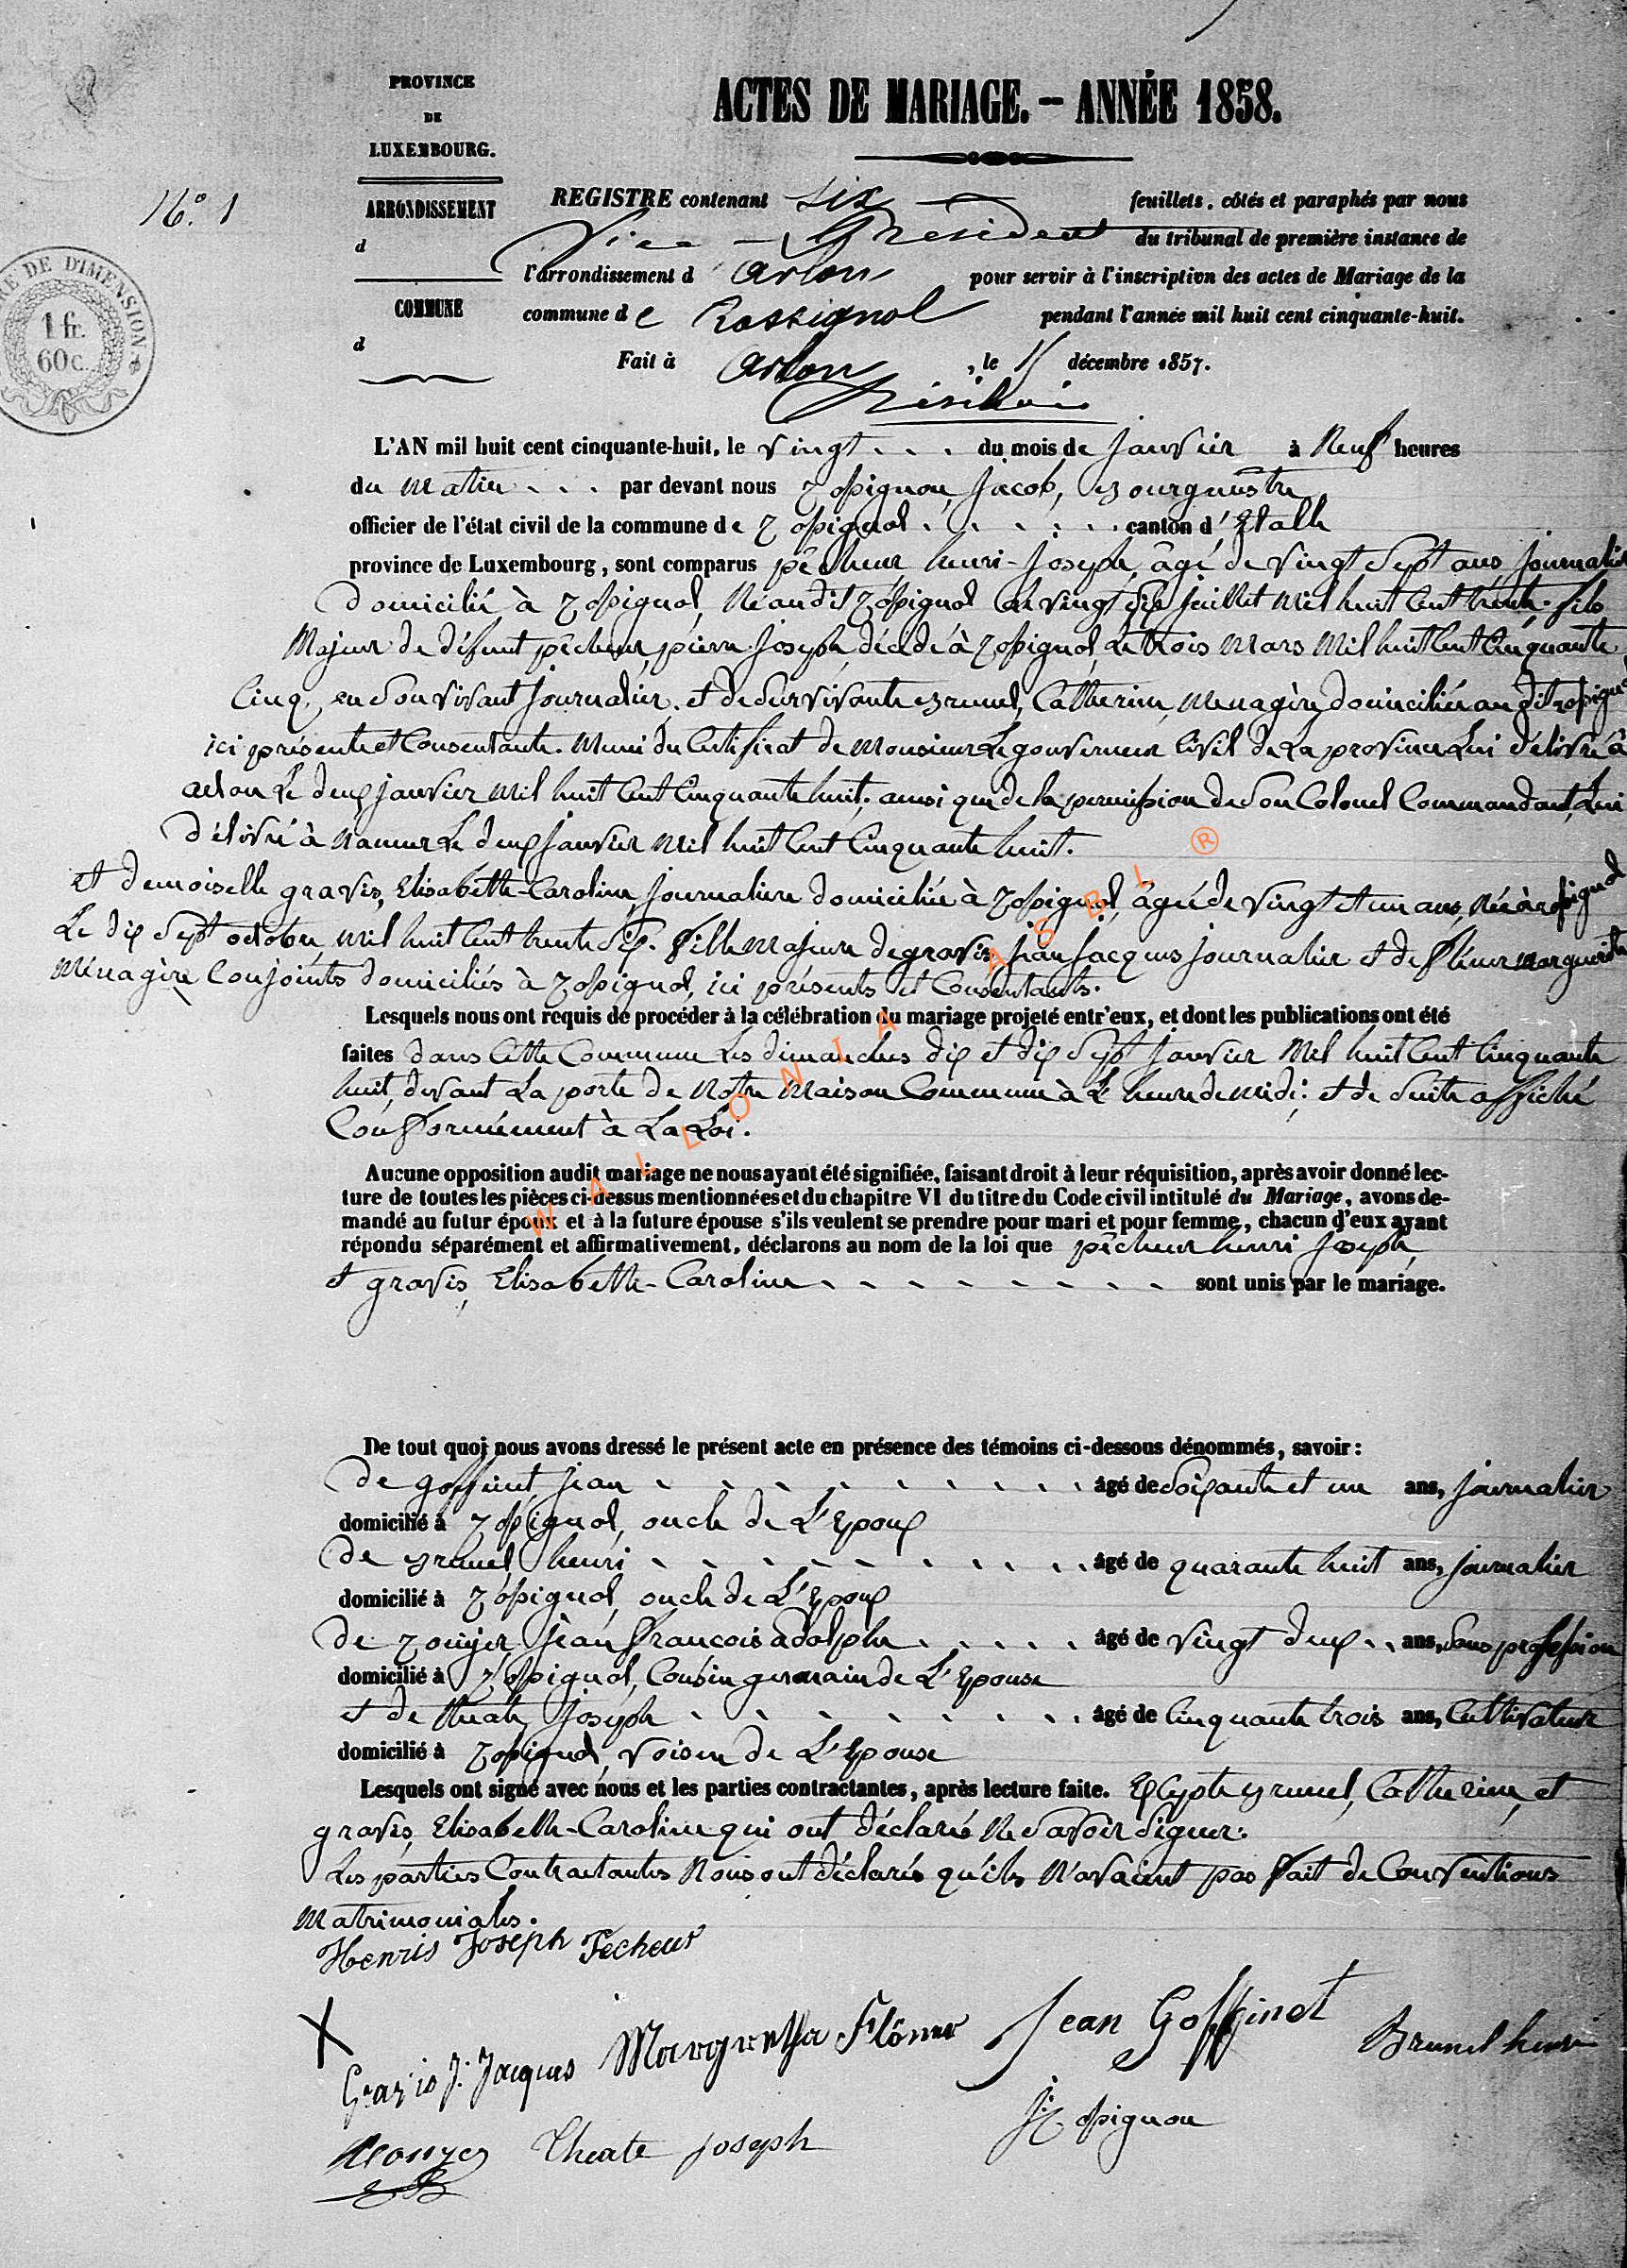 PROVINCE
DE
LUXEMBOURG.
ARRONDISSEMENT
d
COMMUNE
d
N.° 1
RE DE DIMENSION
1 fr.
60 c.
ACTES DE MARIAGE. – ANNÉE 1858.
REGISTRE contenant six feuillets, côtés et paraphés par nous
Vice - Président du tribunal de première instance de
l'arrondissement d'Arlon pour servir à l'inscription des actes de Mariage de la
commune de Rossignol pendant l'année mil huit cent cinquante-huit.
Fait à Arlon, le 15 décembre 1857.
L'AN mil huit cent cinquante-huit, le vingt du mois de janvier à Neuf heures
du Matin par devant nous Rossignon, Jacob, Bourgmestre
officier de l'état civil de la commune de Rossignol canton d'Etalle
province de Luxembourg, sont comparus pêcheur henri-Joseph, âgé de vingt sept ans, journalier
domicilié à Rossignol, Né audit Rossignol le vingt six juillet mil huit cent trente. fils
Majeur de défunt pêcheur, pierre Joseph, décédé à Rossignol, le trois Mars Mil huit cent Cinquante
Cinq, en son vivant Journalier, et de survivante Brunel, Catherine, Menagère domiciliée au dit Rossignol
ici présente et Consentante. Muni du Certificat de Monsieur Le gouverneur Civil de La province Lui délivré à
arlon Le deux janvier mil huit Cent Cinquante huit; ainsi que de la permission de son Colonel Commandant, Lui
délivré à Namur Le deux Janvier Mil huit Cent Cinquante huit.
et demoiselle gravis, Elisabethe-Caroline, Journalière domiciliée à Rossignol, âgée de vingt et un ans, Née à Rossignol
Le dix sept octobre mil huit Cent trente six. fille Majeure de gravis, Jean Jacques journalier et de flener Marguerite
Ménagère Conjoints domiciliés à Rossignol, ici présents et Consentants.
Lesquels nous ont requis de procéder à la célébration du mariage projeté entr'eux, et dont les publications ont été
faites dans Cette Commune Les dimanches dix et dix sept Janvier Mil huit Cent Cinquante
huit, devant La porte de Notre Maison Commune à L'heure de midi; et de suite affiché
Conformément à La Loi.
Aucune opposition audit mariage ne nous ayant été signifiée, faisant droit à leur réquisition, après avoir donné lec-
ture de toutes les pièces ci-dessus mentionnées et du chapitre VI du titre du Code civil intitulé du Mariage, avons de-
mandé au futur époux et à la future épouse s'ils veulent se prendre pour mari et pour femme, chacun d'eux ayant
répondu séparément et affirmativement, déclarons au nom de la loi que pêcheur henri Joseph
et gravis, Elisabethe-Caroline sont unis par le mariage.
De tout quoi nous avons dressé le présent acte en présence des témoins ci-dessous dénommés, savoir:
de goffinet, Jean âgé de Soixante et un ans, Journalier
domicilié à Rossignol, oncle de L'Epoux
de Brunel, henri âgé de quarante huit ans, journalier
domicilié à Rossignol, oncle de L'Epoux
de Rouyer Jean francois adolphe âgé de Vingt deux ans, sans profession
domicilié à Rossignol, Cousin germain de L'Epouse
et de theate, Joseph âgé de Cinquante trois ans, Cultivateur
domicilié à Rossignol, voisin de L'Epouse
Lesquels ont signé avec nous et les parties contractantes, après lecture faite. Excepté Brunel, Catherine, et
gravis, Elisabethe-Caroline qui ont déclarés Ne Savoir Signer.
Les parties Contractantes Nous ont déclarés qu'ils N'avaient pas fait de Conventions
Matrimoniales.
Henris Joseph Pecheur
X
Gravis J: Jacques Margretha Flöner Jean Goffinet Brunel henri
Rouyer Theate joseph J: Rossignon
WALLONIA ASBL ®